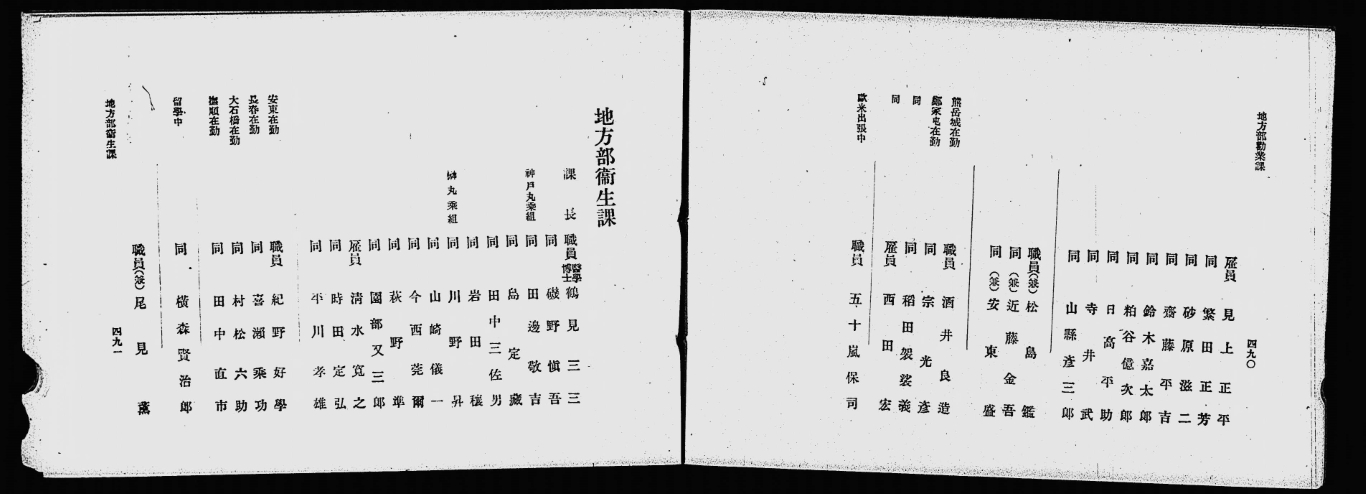 地方部勸業課
四九〇
雇員 見上正平
同 繁田正芳
同 砂原滋二
同 齋藤平吉
同 鈴木嘉太郎
同 粕谷億次郎
同 日高平助
同 寺井武
同 山縣彥三郎
職員(兼) 松島鑑
同(兼) 近藤金吾
同(兼) 安東盛
熊岳城在勤 職員 酒井良造
鄭家屯在勤 同 宗光彥
同 同 稻田袈裟義
同 雇員 西田宏
歐米出張中 職員 五十嵐保司
地方部衞生課
課長 職員 醫學博士 鶴見三三
同 磯野愼吾
神戶丸乘組 同 田邊敬吉
同 島定藏
同 田中三佐男
同 岩田穰
榊丸乘組 同 川野昇
同 山崎儀一
同 今西莞爾
同 萩野準
同 園部又三郎
雇員 淸水寬之
同 時田定弘
同 平川孝雄
安東在勤 職員 紀野好學
長春在勤 同 喜瀨乘功
大石橋在勤 同 村松六助
撫順在勤 同 田中直市
留學中 同 橫森賢治郎
職員(兼) 尾見薰
地方部衞生課
四九一